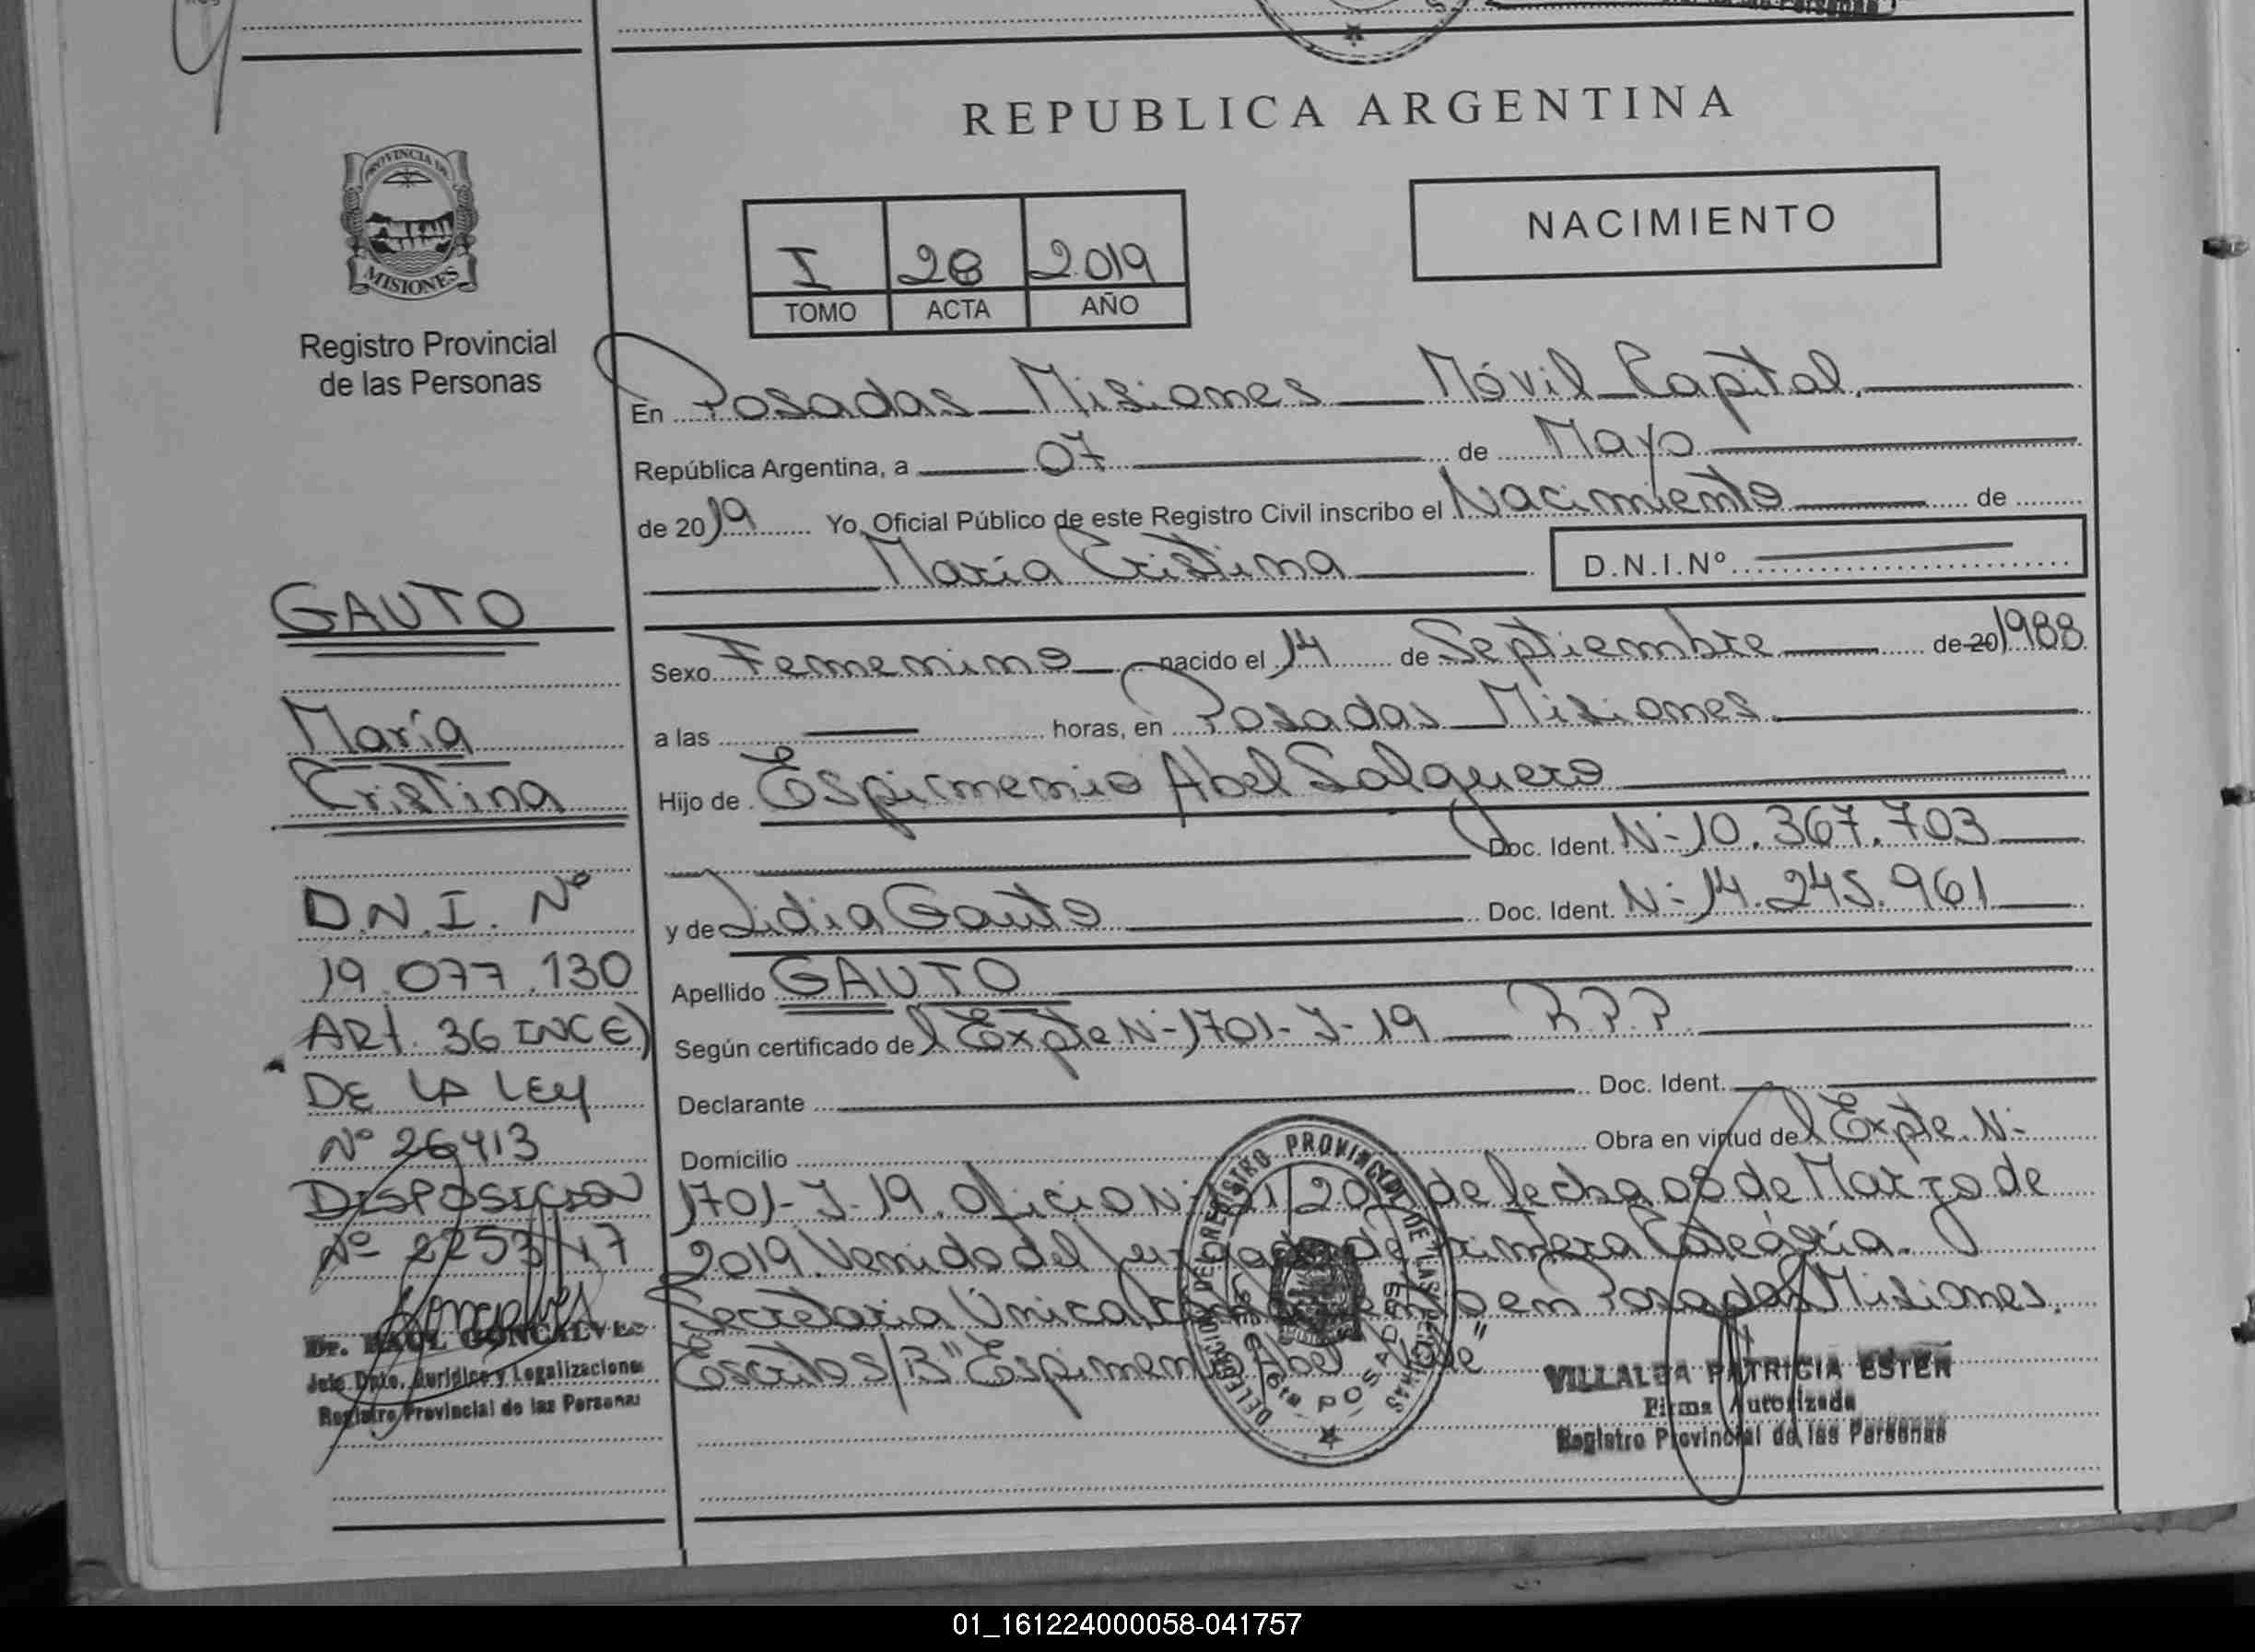 REPUBLICA ARGENTINA
PROVINCIA DE
MISIONES
Registro Provincial
de las Personas
I 28 2019
TOMO ACTA AÑO
NACIMIENTO
En Posadas Misiones Móvil Capital.
República Argentina, a 07 de Mayo
de 2019 Yo, Oficial Público de este Registro Civil inscribo el Nacimiento de
María Cristina D.N.I.Nº
Sexo Femenino nacido el 14 de Septiembre de 20 1988
a las horas, en Posadas Misiones
Hijo de Espirmenio Abel Salguero
Doc. Ident. N: 10.367.703
y de Lidia Gauto Doc. Ident. N: 14.245.961
Apellido GAUTO
Según certificado del Expte N-1701-J-19 R.P.P.
Declarante Doc. Ident.
Domicilio Obra en virtud del Expte. N:
1701-J-19. Oficio N: de fecha 08 de Marzo de
2019. Venido del Juzgado de Primera
Secretaria Única en Posadas Misiones.
Escritos S/B" Abel
GAUTO
María
Cristina
D.N.I. Nº
19.077.130
ART. 36 INC E)
DE LA LEY
Nº 26413
DISPOSICION
Nº 2253/17
Dr. RAUL GONCALVES
Jefe Dpto. Jurídico y Legalizaciones
Registro Provincial de las Personas
DELEGACION DEL REGISTRO PROVINCIAL DE LAS PERSONAS
POSADAS
VILLALBA PATRICIA ESTER
Firma Autorizada
Registro Provincial de las Personas
01_161224000058-041757